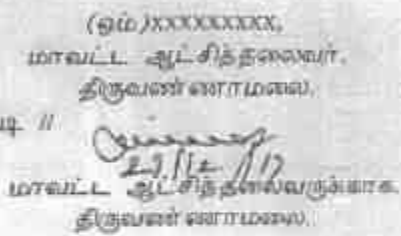 (ஒம்)XXXXXXXXXX,
மாவட்ட ஆட்சித்தலைவர்,
திருவண்ணாமலை.
டி //
மாவட்ட ஆட்சித்தலைவருக்காக,
திருவண்ணாமலை.